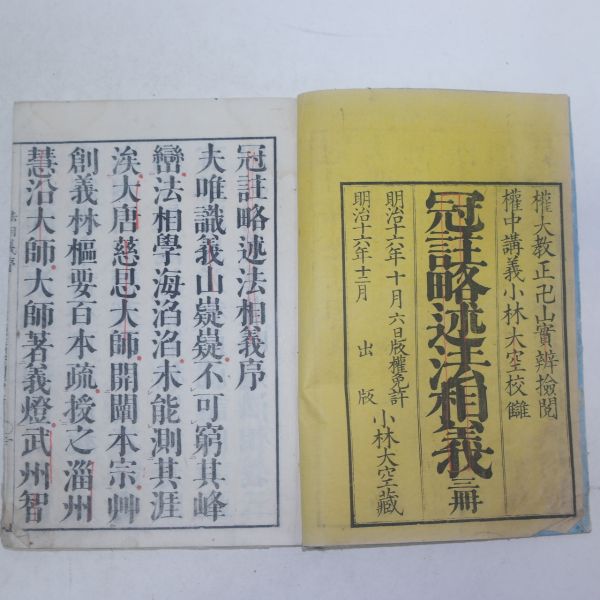 權大教正卍山實辨撿閲
權中講義小林大空校讎
冠註略述法相義三冊
明治十六年十月六日版權免許
小林大空藏
明治十六年十二月
出版
冠註略述法相義序
夫唯識義山嶷嶷不可窮其峰
巒法相學海滔滔未能測其涯
涘大唐慈恩大師開闡本宗艸
創義林樞要百本疏授之淄州
慧沼大師大師著義燈武州智